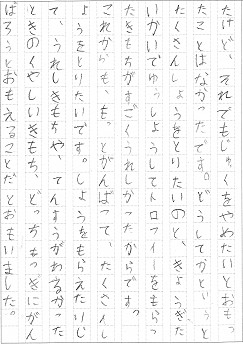 たけど、それでもじゅくをやめたいとおもっ
たことはなかったです。どうしてかというと
たくさんしょうをとりたいのと、きょうぎた
いかいでゆうしょうしてトロフィーをもらっ
たきもちがすごくうれしかったからです。
これからも、もっとがんばって、たくさんし
ょうをとりたいです。しょうをもらえたりし
て、うれしきもちや、てんすうがわるかった
ときのくやしいきもち、どっちもつぎにがん
ばろうとおもえることだとおもいました。